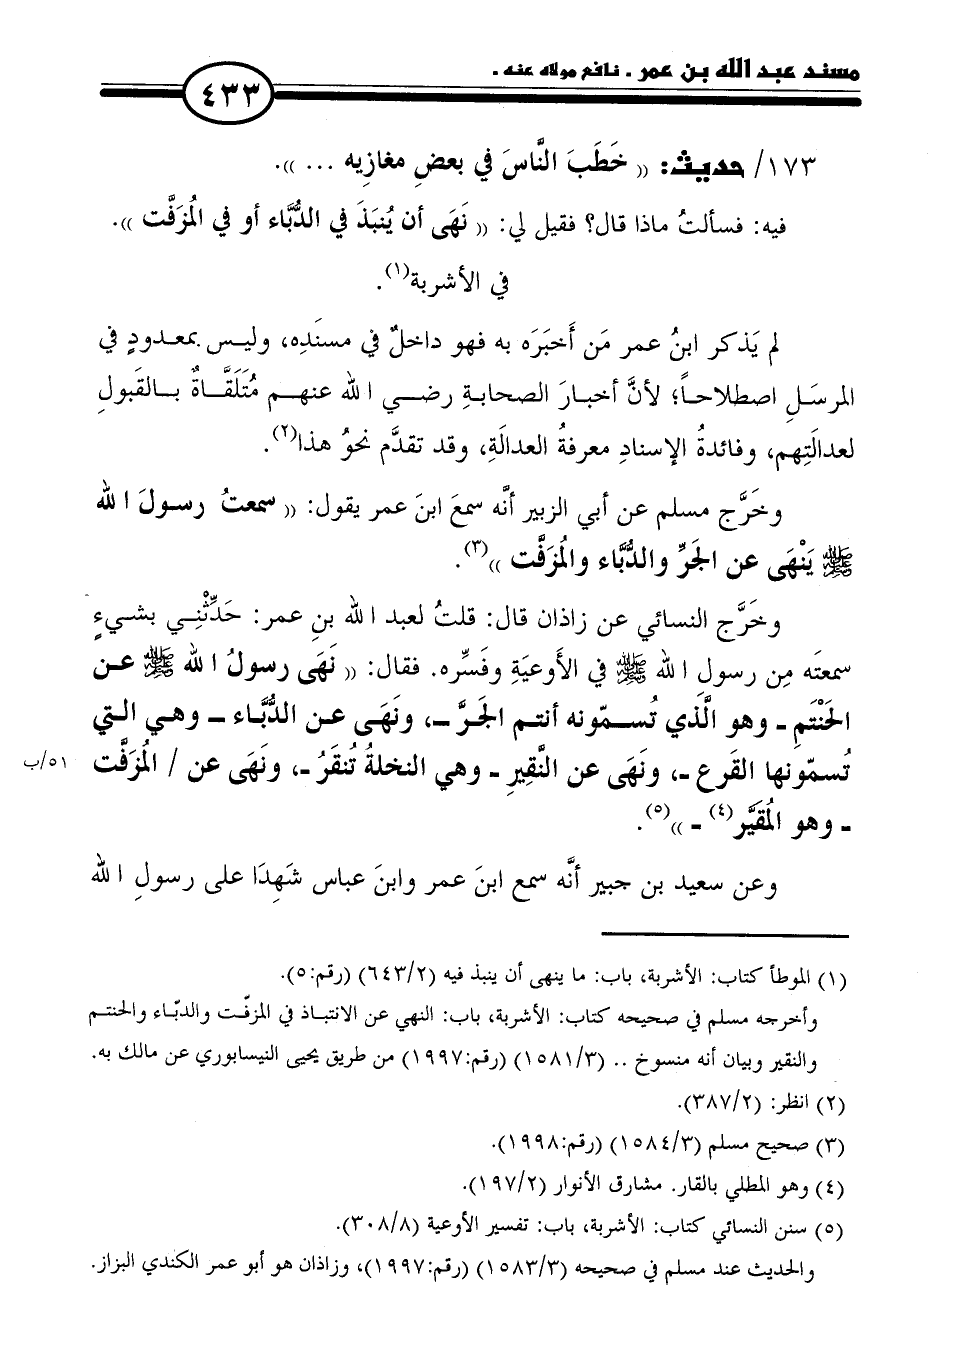 مسند عبد الله بن عمر . نافع مولاه عنه .
٤٣٣
١٧٣/ حديث: (( خَطَبَ النَّاسَ في بعضِ مغازِيه ... )).
فيه: فسألتُ ماذا قال؟ فقيل لي: (( نَهَى أن يُنبَذَ في الدُّبَّاء أو في المُزَفَّت )).
في الأشربة(١).
لم يَذكر ابنُ عمر مَن أَخبَرَه به فهو داخلٌ في مسنَدِه، وليس بمعدودٍ في
المرسَلِ اصطلاحاً؛ لأنَّ أخبارَ الصحابةِ رضي الله عنهم مُتَلَقَّاةٌ بالقَبولِ
لعدالَتِهم، وفائدةُ الإسنادِ معرفةُ العدالَةِ، وقد تقدَّم نحوُ هذا(٢).
وخَرَّج مسلم عن أبي الزبير أنَّه سمعَ ابنَ عمر يقول: (( سمعتُ رسولَ الله
ﷺ يَنْهَى عن الجَرِّ والدُّبَّاء والمُزَفَّت ))(٣).
وخَرَّج النسائي عن زاذان قال: قلتُ لعبد الله بنِ عمر: حَدِّثْنِي بشيءٍ
سمعتَه مِن رسول الله ﷺ في الأَوعيَةِ وفَسِّره. فقال: (( نَهَى رسولُ الله ﷺ عن
الحَنْتَمِ ـ وهو الَّذي تُسمّونه أنتم الجَرَّ ـ، ونَهَى عن الدُّبَّاء ـ وهي التي
تُسمّونها القَرع ـ، ونَهَى عن النَّقِيرِ ـ وهي النخلةُ تُنقَرُ ـ، ونَهَى عن / المُزَفَّت
٥١/ب
ـ وهو المُقَيَّر(٤) ـ ))(٥).
وعن سعيد بن جبير أنَّه سمع ابنَ عمر وابنَ عباس شَهِدَا على رسولِ الله
(١) الموطأ كتاب: الأشربة، باب: ما ينهى أن ينبذ فيه (٦٤٣/٢) (رقم:٥).
وأخرجه مسلم في صحيحه كتاب: الأشربة، باب: النهي عن الانتباذ في المزفّت والدبّاء والحنتم
والنقير وبيان أنه منسوخ .. (١٥٨١/٣) (رقم:١٩٩٧) من طريق يحيى النيسابوري عن مالك به.
(٢) انظر: (٣٨٧/٢).
(٣) صحيح مسلم (١٥٨٤/٣) (رقم:١٩٩٨).
(٤) وهو المطلي بالقار. مشارق الأنوار (١٩٧/٢).
(٥) سنن النسائي كتاب: الأشربة، باب: تفسير الأوعية (٣٠٨/٨).
والحديث عند مسلم في صحيحه (١٥٨٣/٣) (رقم:١٩٩٧)، وزاذان هو أبو عمر الكندي البزاز.